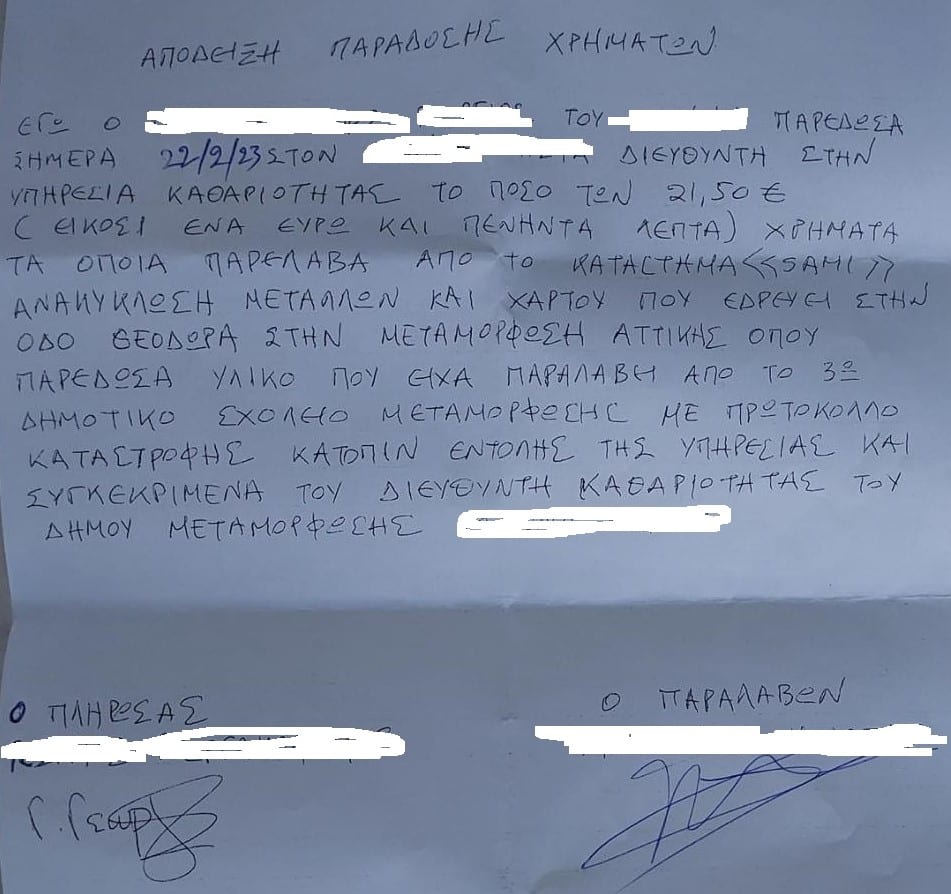 ΑΠΟΔΕΙΞΗ ΠΑΡΑΔΟΣΗΣ ΧΡΗΜΑΤΩΝ
ΕΓΩ Ο ΤΟΥ ΠΑΡΕΔΩΣΑ
ΣΗΜΕΡΑ 22/2/23 ΣΤΟΝ ΔΙΕΥΘΥΝΤΗ ΣΤΗΝ
ΥΠΗΡΕΣΙΑ ΚΑΘΑΡΙΟΤΗΤΑΣ ΤΟ ΠΟΣΟ ΤΩΝ 21,50 €
(ΕΙΚΟΣΙ ΕΝΑ ΕΥΡΩ ΚΑΙ ΠΕΝΗΝΤΑ ΛΕΠΤΑ) ΧΡΗΜΑΤΑ
ΤΑ ΟΠΟΙΑ ΠΑΡΕΛΑΒΑ ΑΠΟ ΤΟ ΚΑΤΑΣΤΗΜΑ <<SAMI>>
ΑΝΑΚΥΚΛΩΣΗ ΜΕΤΑΛΛΩΝ ΚΑΙ ΧΑΡΤΟΥ ΠΟΥ ΕΔΡΕΥΕΙ ΣΤΗΝ
ΟΔΟ ΘΕΟΔΩΡΑ ΣΤΗΝ ΜΕΤΑΜΟΡΦΩΣΗ ΑΤΤΙΚΗΣ ΟΠΟΥ
ΠΑΡΕΔΩΣΑ ΥΛΙΚΟ ΠΟΥ ΕΙΧΑ ΠΑΡΑΛΑΒΕΙ ΑΠΟ ΤΟ 3Ο
ΔΗΜΟΤΙΚΟ ΣΧΟΛΕΙΟ ΜΕΤΑΜΟΡΦΩΣΗΣ ΜΕ ΠΡΩΤΟΚΟΛΛΟ
ΚΑΤΑΣΤΡΟΦΗΣ ΚΑΤΟΠΙΝ ΕΝΤΟΛΗΣ ΤΗΣ ΥΠΗΡΕΣΙΑΣ ΚΑΙ
ΣΥΓΚΕΚΡΙΜΕΝΑ ΤΟΥ ΔΙΕΥΘΥΝΤΗ ΚΑΘΑΡΙΟΤΗΤΑΣ ΤΟΥ
ΔΗΜΟΥ ΜΕΤΑΜΟΡΦΩΣΗΣ
Ο ΠΛΗΡΩΣΑΣ
Ο ΠΑΡΑΛΑΒΩΝ